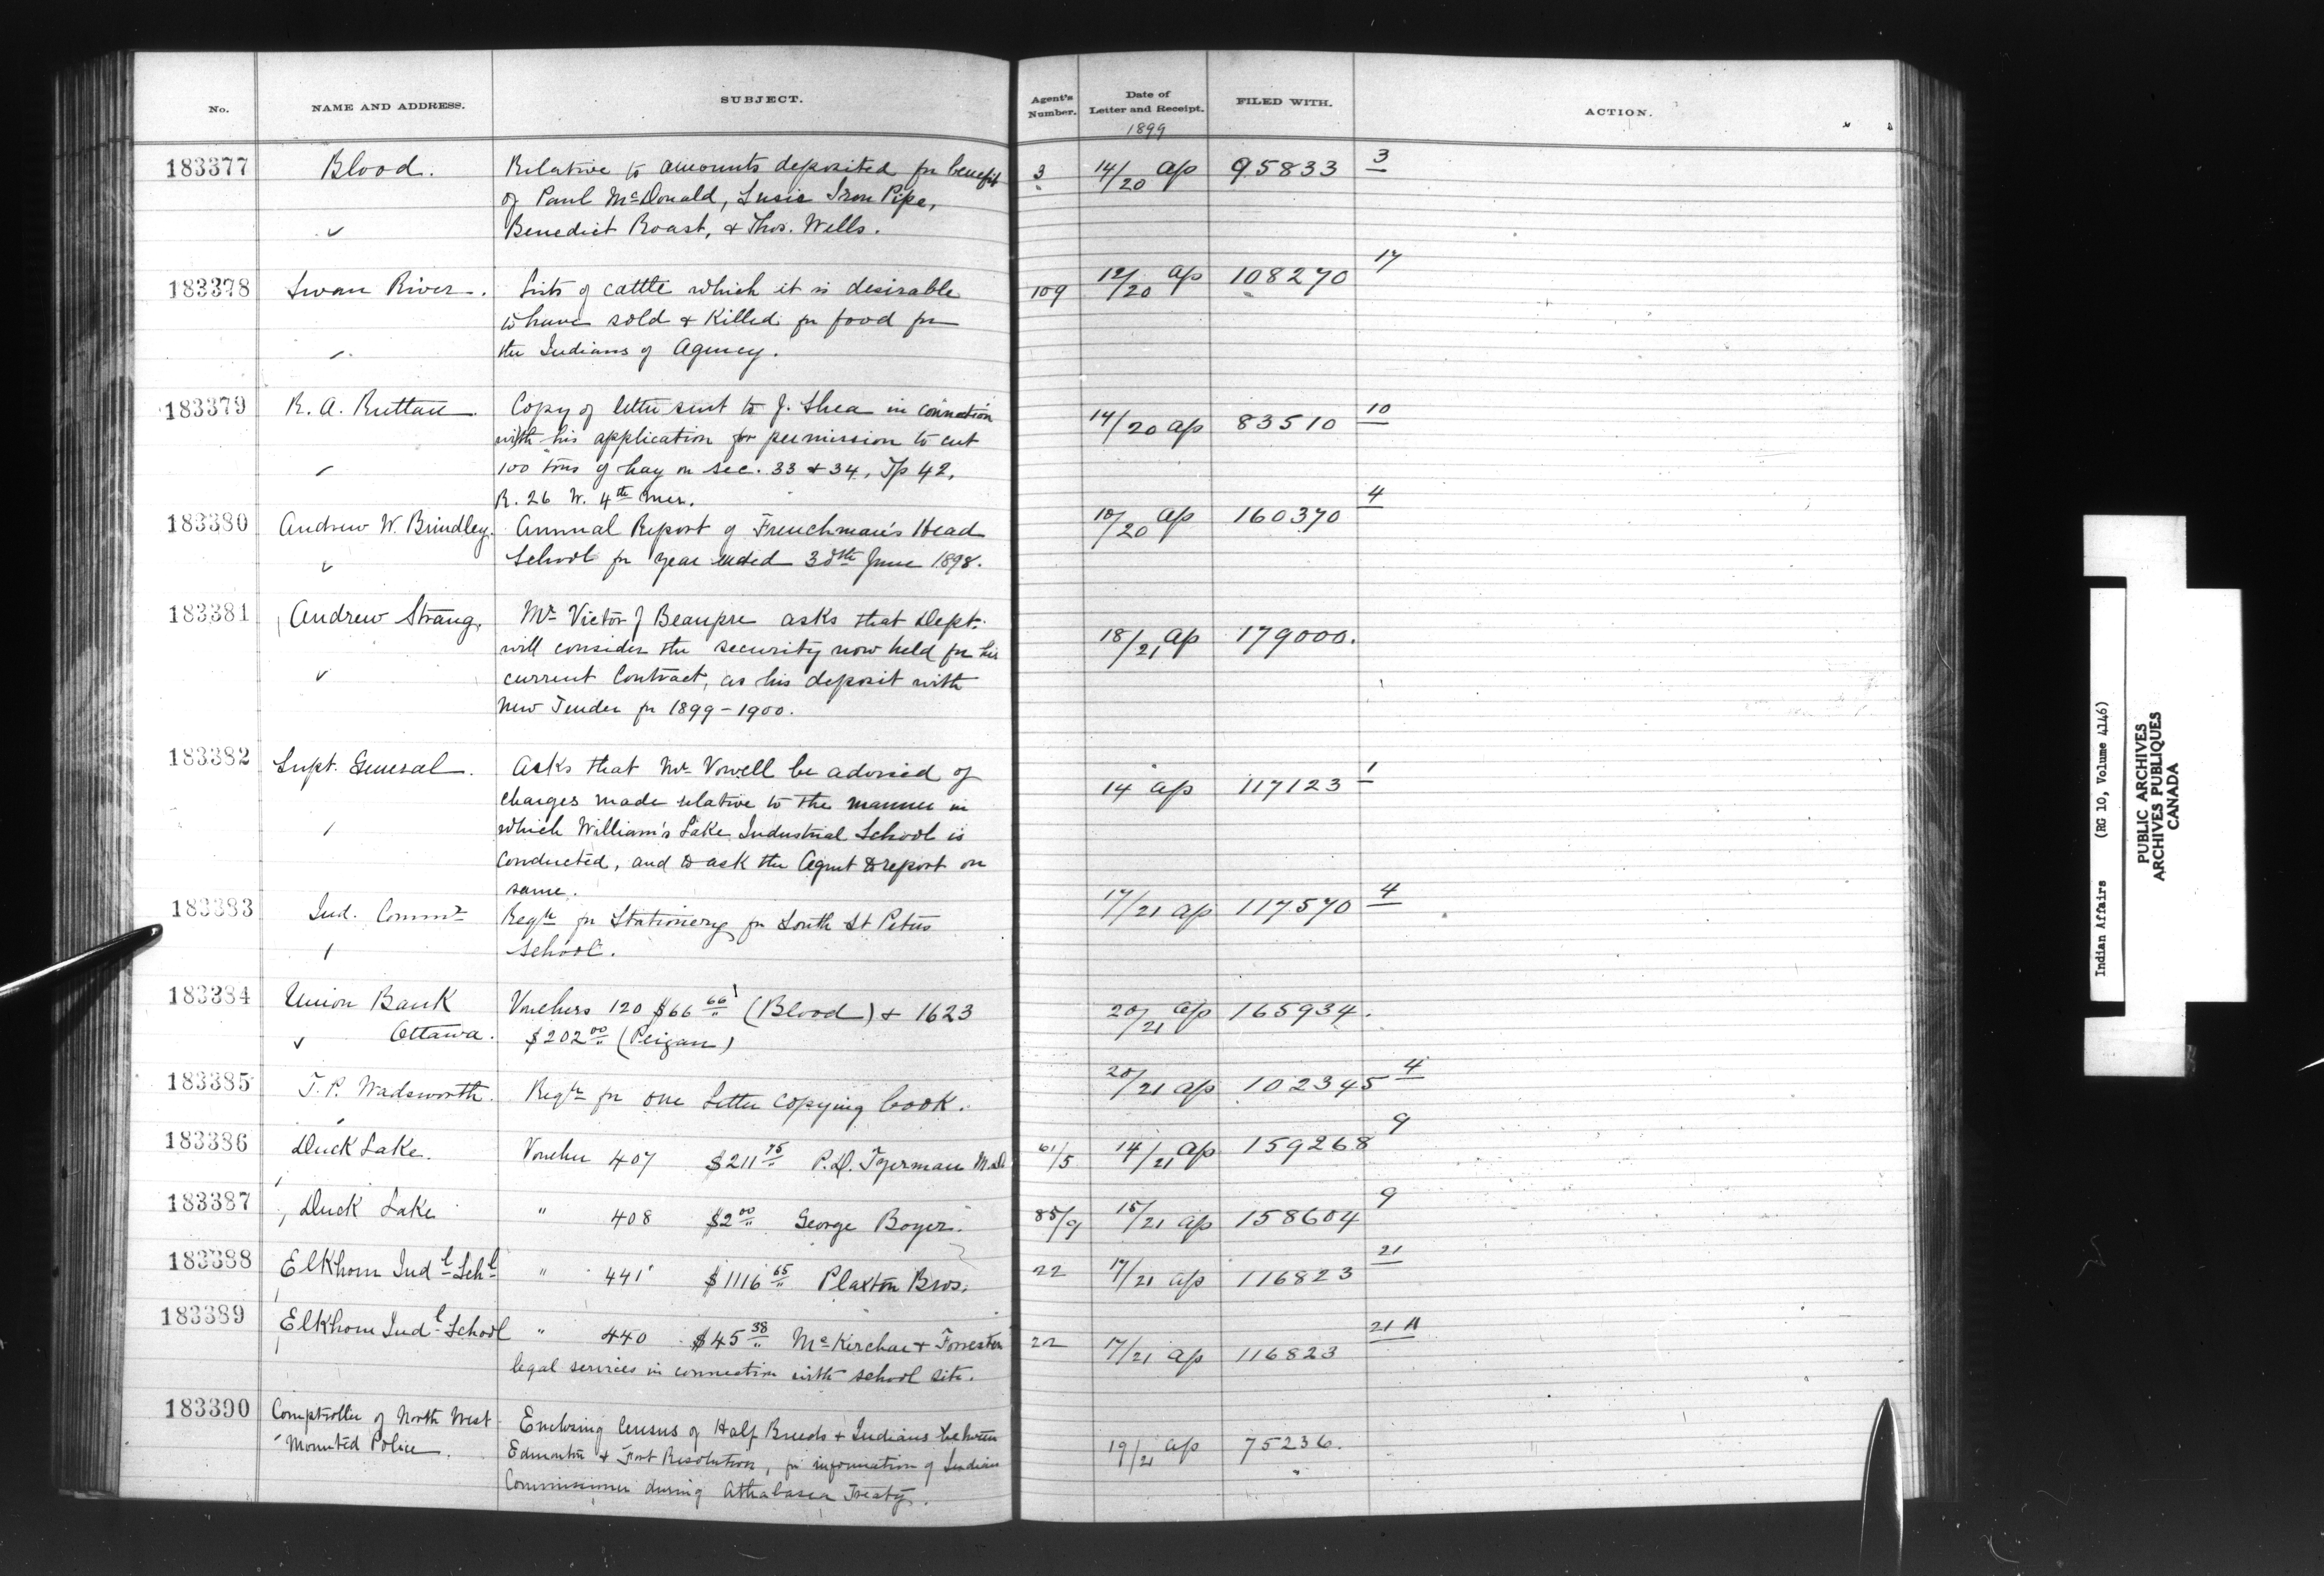 No. NAME AND ADDRESS. SUBJECT. Agent's Number. Date of Letter and Receipt. FILED WITH. ACTION.
1899
183377 Blood. Relative to amounts deposited for benefit 3 14/20 Ap 95833 3
of Paul McDonald, Susie Iron Pipe,
Benedict Roast, & Thos. Wells.
183378 Swan River. Lists of cattle which it is desirable 109 12/20 Ap 108270 17
to have sold & killed for food for
the Indians of Agency.
183379 R. A. Ruttan. Copy of letter sent to J. Shea in connection 14/20 Ap 83510 10
with his application for permission to cut
100 tons of hay on sec. 33 & 34, Tp 42,
R. 26 W. 4th Mer.
183380 Andrew W. Brindley. Annual Report of Frenchman's Head 10/20 Ap 160370 4
School for year ended 30th June 1898.
183381 Andrew Strang. Mr Victor J Beaupre asks that Dept. 18/21 Ap 179000.
will consider the security now held for his
current Contract, as his deposit with
New Tender for 1899-1900.
183382 Supt. General. Asks that Mr Vowell be advised of 14 Ap 117123 1
charges made relative to the manner in
which William's Lake Industrial School is
conducted, and to ask the Agent to report on
same.
183383 Ind. Commr Reqn for Stationery for South St Peters 17/21 Ap 117570 4
School.
183384 Union Bank Vouchers 120 $66 66 (Blood) & 1623 20/21 Ap 165934.
Ottawa. $202 00 (Peigan)
183385 T. P. Wadsworth. Reqn for one Letter copying book. 20/21 Ap 102345 4
183386 Duck Lake. Voucher 407 $211 75 P. D. Tyerman M.D. 61/5 14/21 Ap 159268 9
183387 Duck Lake " 408 $2 00 George Boyer. 85/9 15/21 Ap 158604 9
183388 Elkhorn Indl Schl " 441 $1116 65 Plaxton Bros. 22 17/21 Ap 116823 21
183389 Elkhorn Indl School " 440 $45 38 McKirchar & Forrester 22 17/21 Ap 116823 21
legal services in connection with school site.
183390 Comptroller of North West Mounted Police. Enclosing Census of Half Breeds & Indians between 19/21 Ap 75236.
Edmonton & Fort Resolution, for information of Indian
Commissioner during Athabasca Treaty.
Indian Affairs (RG 10, Volume 4146)
PUBLIC ARCHIVES
ARCHIVES PUBLIQUES
CANADA